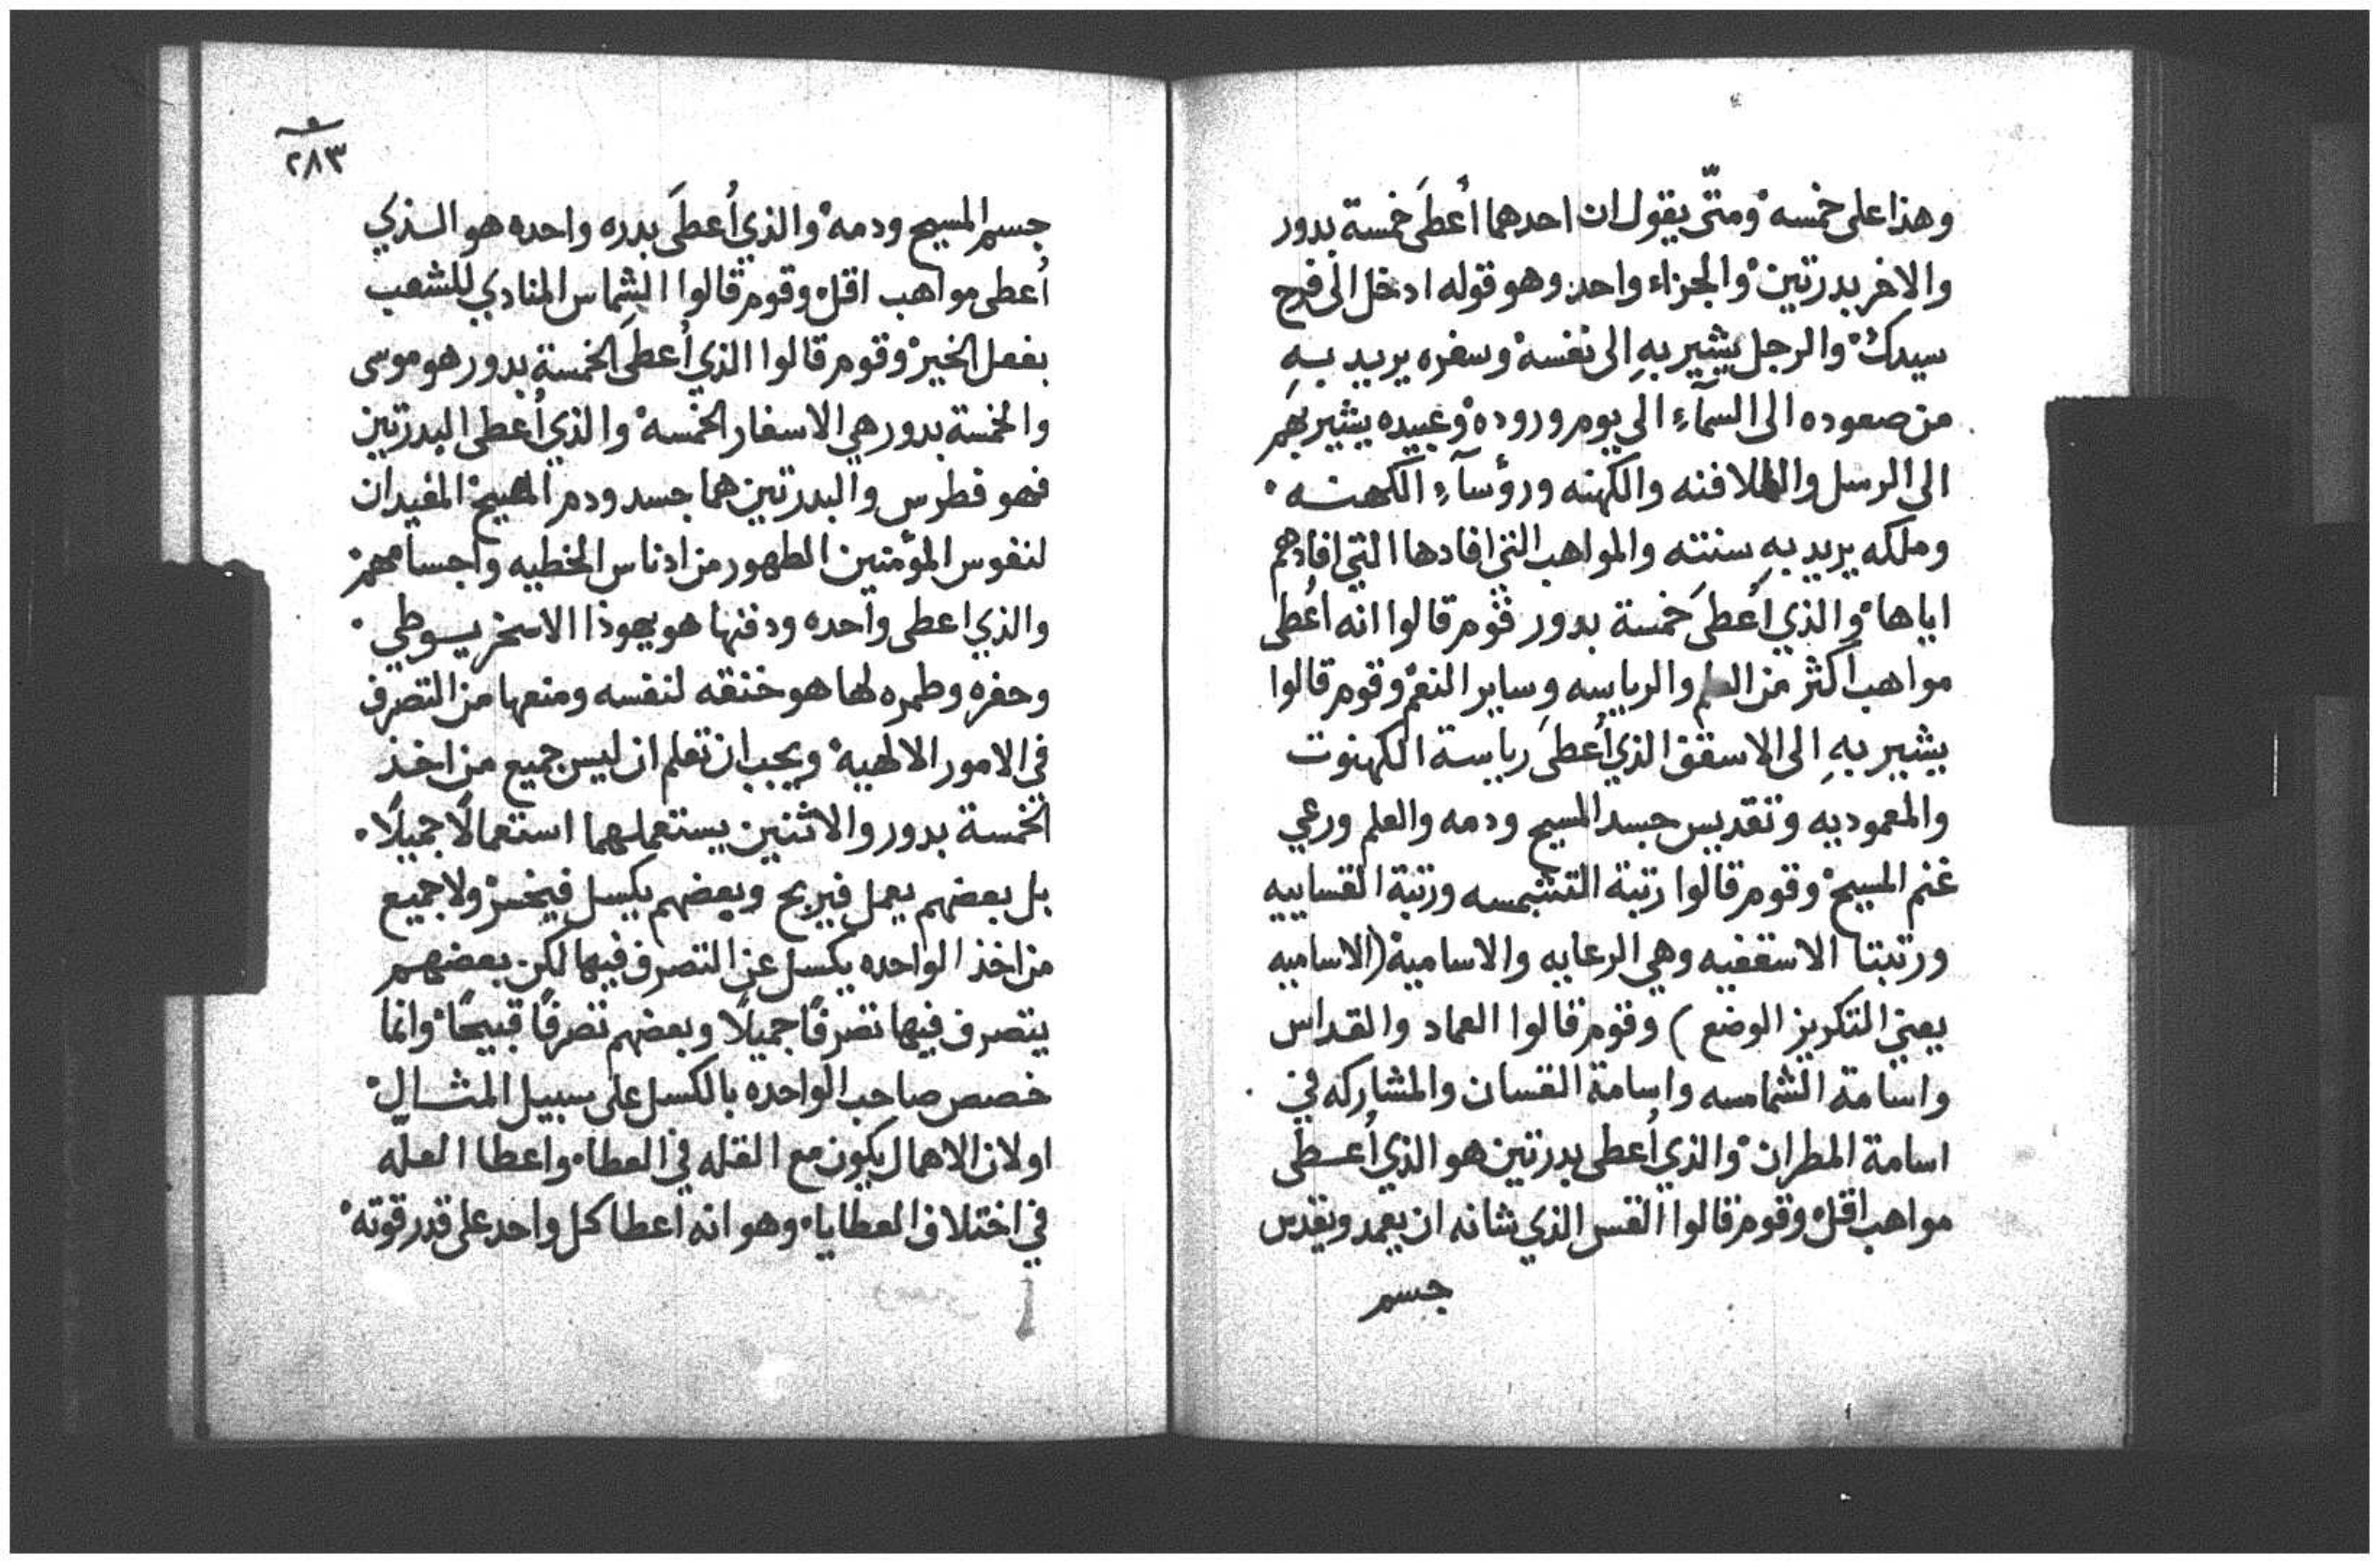 وهذا على خمسه ومتّى يقول ان احدهما أعطَى خمسة بدور
والاخر بدرتين والجزاء واحد وهو قوله ادخل الى فرح
سيدك والرجل يشير بهِ الى نفسه وسفره يريد بهِ
من صعوده الى السمآءِ الى يوم وروده وعبيده يشير بهم
الى الرسل والملافنه والكهنه ورؤسآءِ الكهنه
وملكه يريد به سنته والمواهب التي افادها التي افادهم
اياها والذي أعطَى خمسة بدور فقوم قالوا انه أعطى
مواهب اكثر من العلم والرياسه وساير النعم وقوم قالوا
يشير بهِ الى الاسقف الذي أُعطَى رياسة الكهنوت
والمعموديه وتقديس جسد المسيح ودمه والعلم ورعي
غنم المسيح وقوم قالوا رتبة التشمسه ورتبة القساييه
ورتبتا الاسقفيه وهي الرعايه والاساميه (الاساميه
يعني التكريز الوضع) وقوم قالوا العماد والقداس
واسامة الشمامسه واسامة القسان والمشاركه في
اسامة المطران والذي أعطى بدرتين هو الذي أعطى
مواهب اقل وقوم قالوا القس الذي شانه ان يعمد ويقدس
جسم
٢٨٣
جسم المسيح ودمه والذي أُعطَى بدره واحده هو الذي
أعطى مواهب اقل وقوم قالوا الشماس المنادي للشعب
بفعل الخير وقوم قالوا الذي أُعطَى الخمسة بدور هو موسى
والخمسة بدور هي الاسفار الخمسه والذي أعطى البدرتين
فهو فطرس والبدرتين هما جسد ودم المسيح المفيدان
لنفوس المؤمنين الطهور من ادناس الخطيه واجسامهم
والذي اعطى واحده ودفنها هو يهوذا الاسخريوطي
وحفره وطمره لها هو خنقه لنفسه ومنعها من التصرف
في الامور الالهيه ويجب ان تعلم ان ليس جميع من اخذ
الخمسة بدور والاثنين يستعملهما استعمالًا جميلًا
بل بعضهم يعمل فيربح وبعضهم يكسل فيخسر ولا جميع
من اخذ الواحده يكسل عن التصرف فيها لكن بعضهم
يتصرف فيها تصرفًا جميلًا وبعضهم تصرفًا قبيحًا وانما
خصص صاحب الواحده بالكسل على سبيل المثال
او لان الاهمال يكون مع القله في العطا واعطا العلّه
في اختلاف العطايا وهو انه اعطا كل واحد على قدر قوته